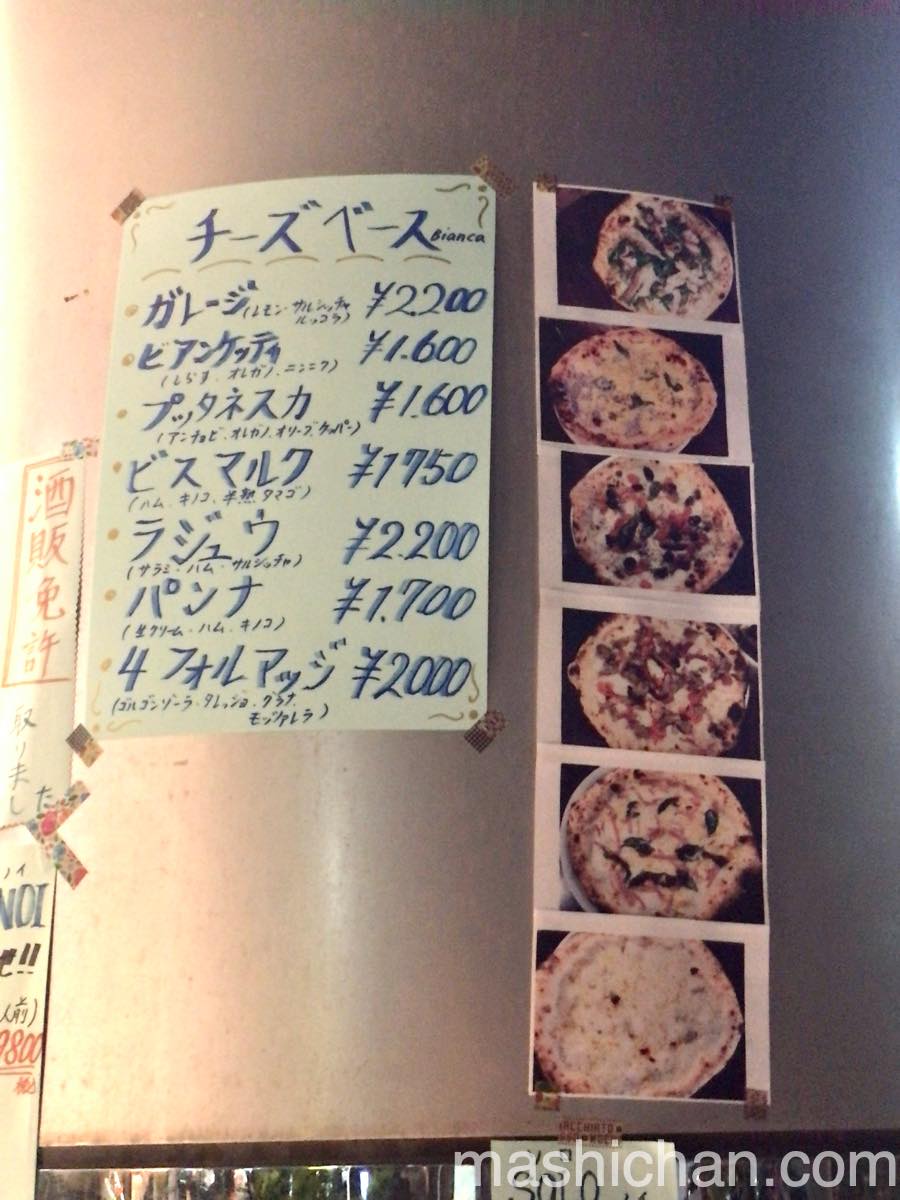 チーズベース Bianca
ガレージ(レモン・サルシッチャ ルッコラ) ¥2.200
ビアンケッティ ¥1.600
(しらす、オレガノ、ニンニク)
プッタネスカ ¥1.600
(アンチョビ、オレガノ、オリーブ、ケッパー)
ビスマルク ¥1750
(ハム、キノコ、半熟タマゴ)
ラジュウ ¥2.200
(サラミ・ハム・サルシッチャ)
パンナ ¥1.700
(生クリーム、ハム、キノコ)
4フォルマッジ ¥2000
(ゴルゴンゾーラ・タレッジョ・グラナ
モッツァレラ)
酒販免許
取りました
ノイ
NOI
!!
人前)
9800
SOLO
mashichan.com